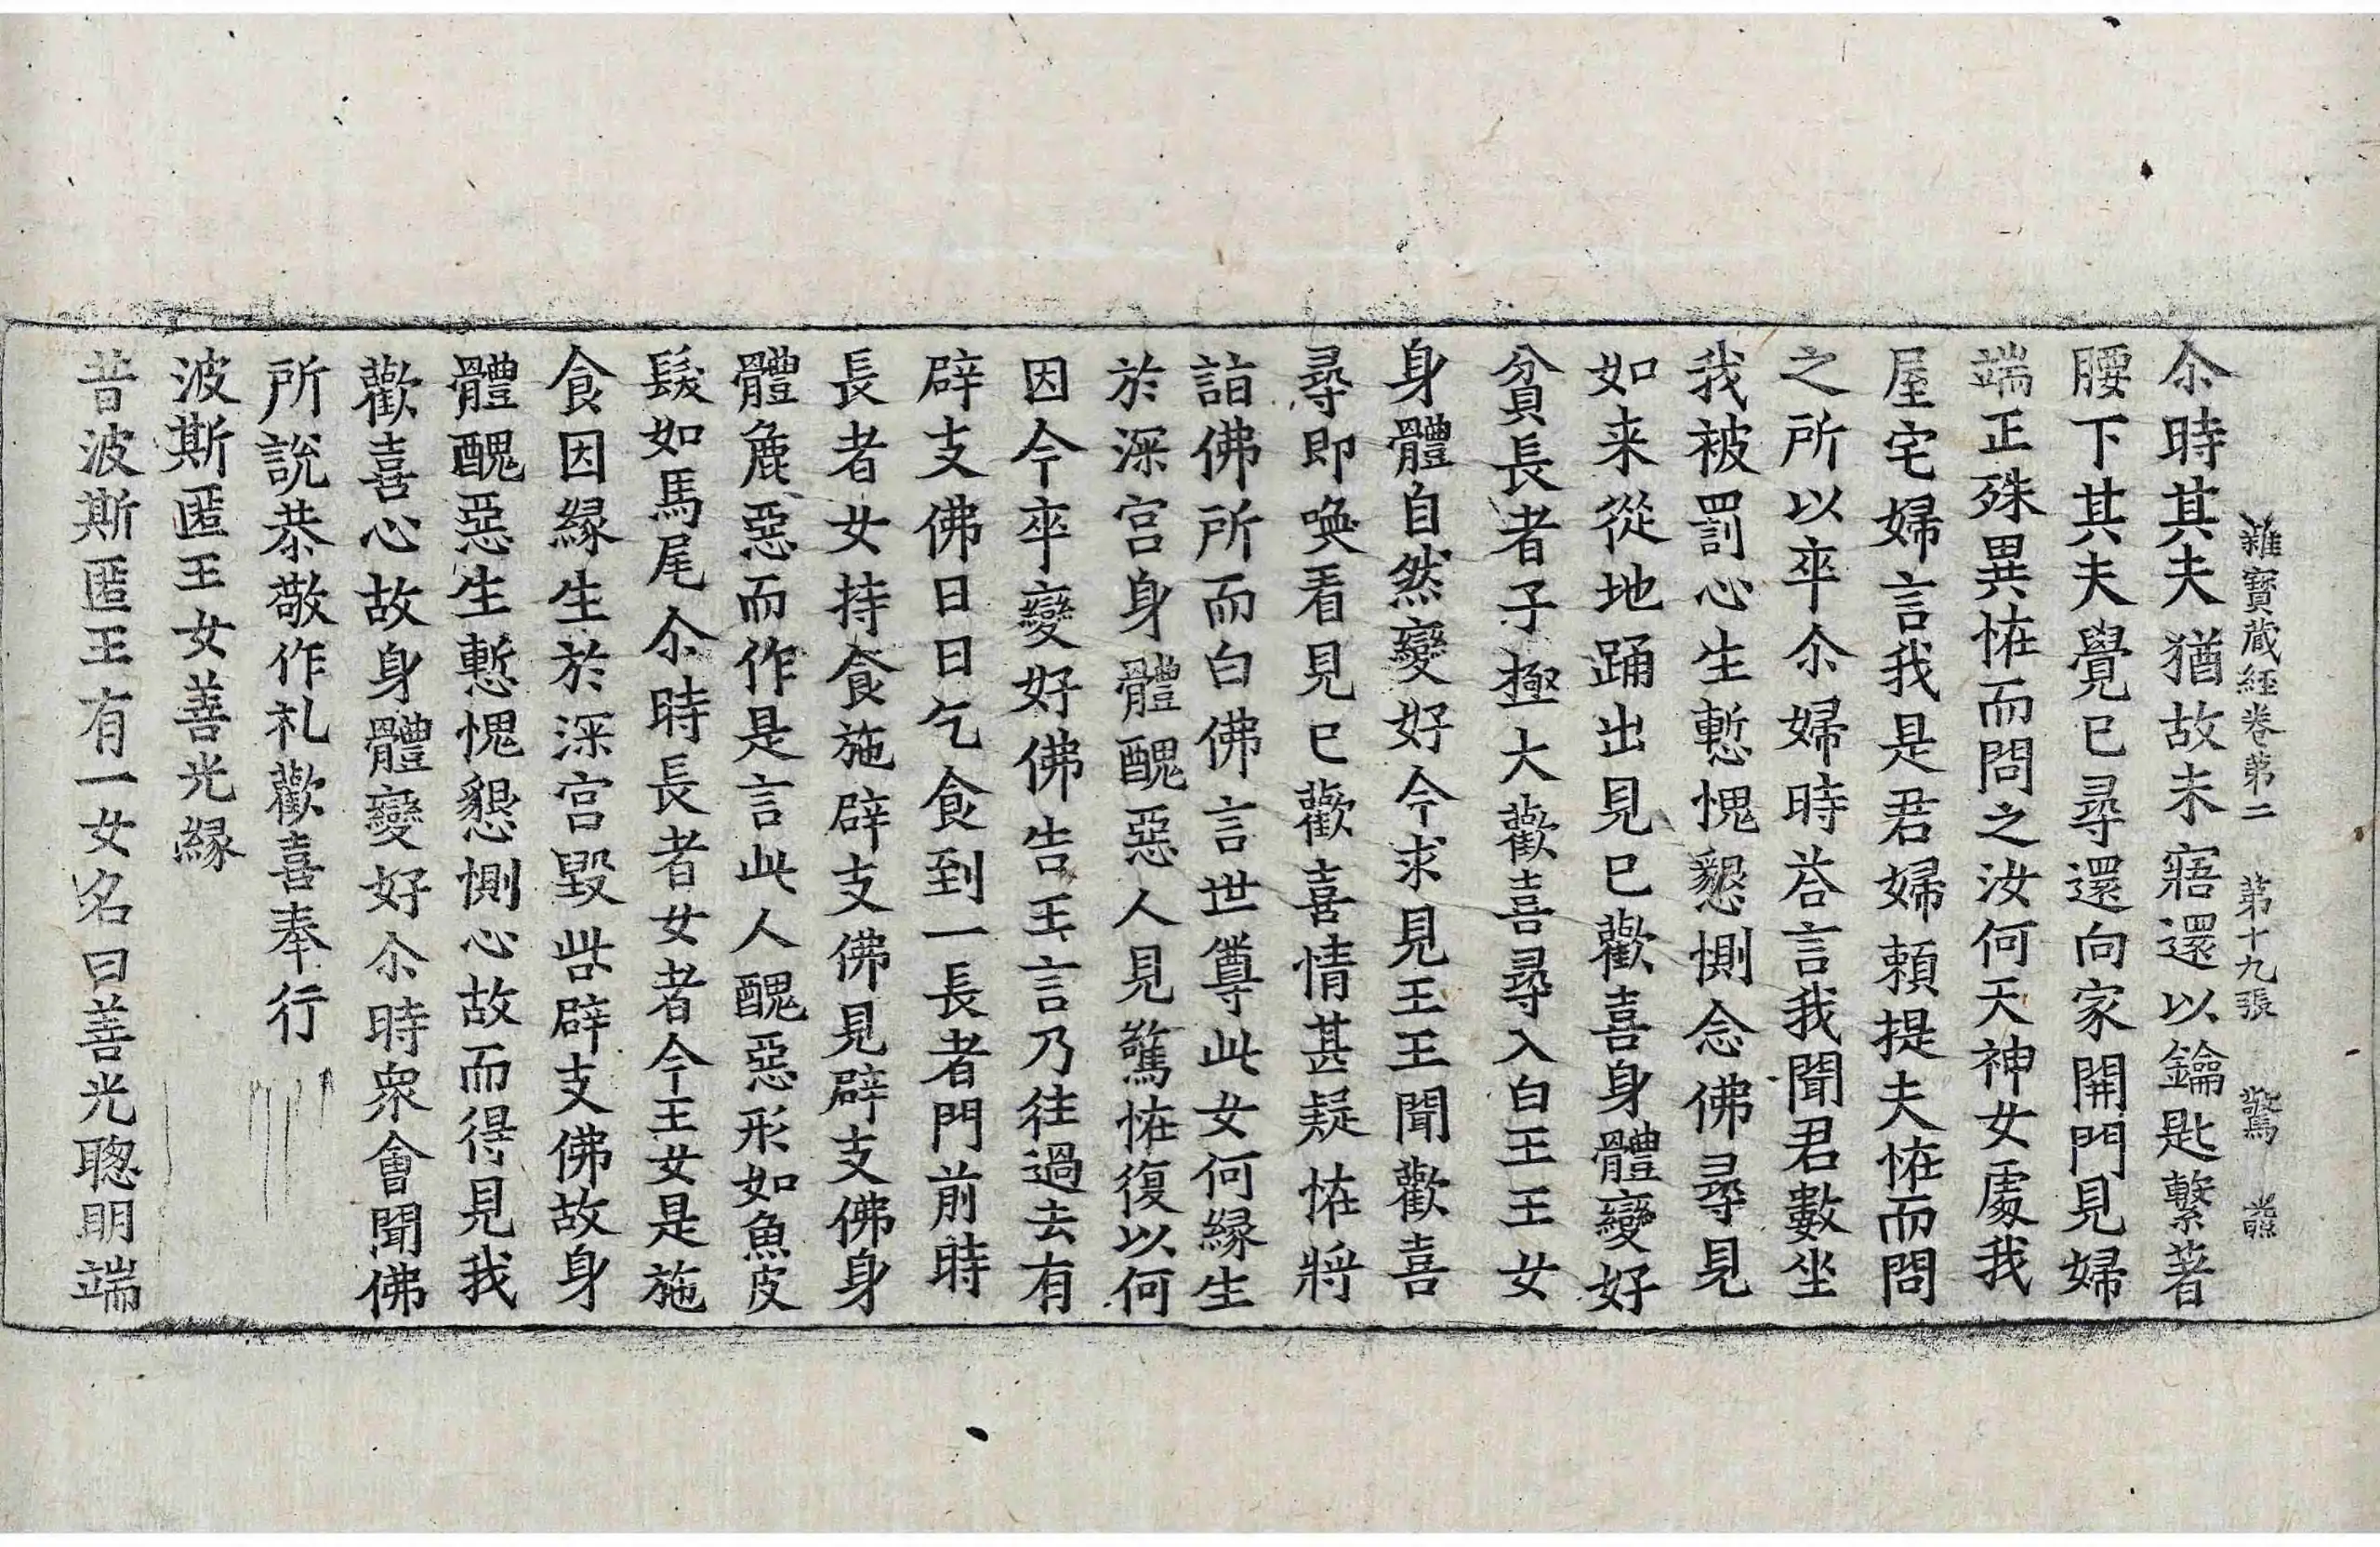 雜寶蔵経卷第二 第十九張 驚
尒時其夫猶故未寤還以鑰匙繫著
腰下其夫覺已尋還向家開門見婦
端正殊異恠而問之汝何天神女處我
屋宅婦言我是君婦頼提夫恠而問
之所以卒尒婦時荅言我聞君數坐
我被罰心生慙愧懇惻念佛尋見
如来從地踊出見已歡喜身體變好
貧長者子極大歡喜尋入白王王女
身體自然變好今求見王王聞歡喜
尋即喚看見已歡喜情甚疑恠將
詣佛所而白佛言世尊此女何縁生
於深宫身體醜惡人見驚恠復以何
因今卒變好佛告王言乃往過去有
辟支佛日日乞食到一長者門前時
長者女持食施辟支佛見辟支佛身
體麁惡而作是言此人醜惡形如魚皮
髮如馬尾尒時長者女者今王女是施
食因縁生於深宫毀呰辟支佛故身
體醜惡生慙愧懇惻心故而得見我
歡喜心故身體變好尒時衆會聞佛
所說恭敬作礼歡喜奉行
波斯匿王女善光縁
昔波斯匿王有一女名曰善光聦明端